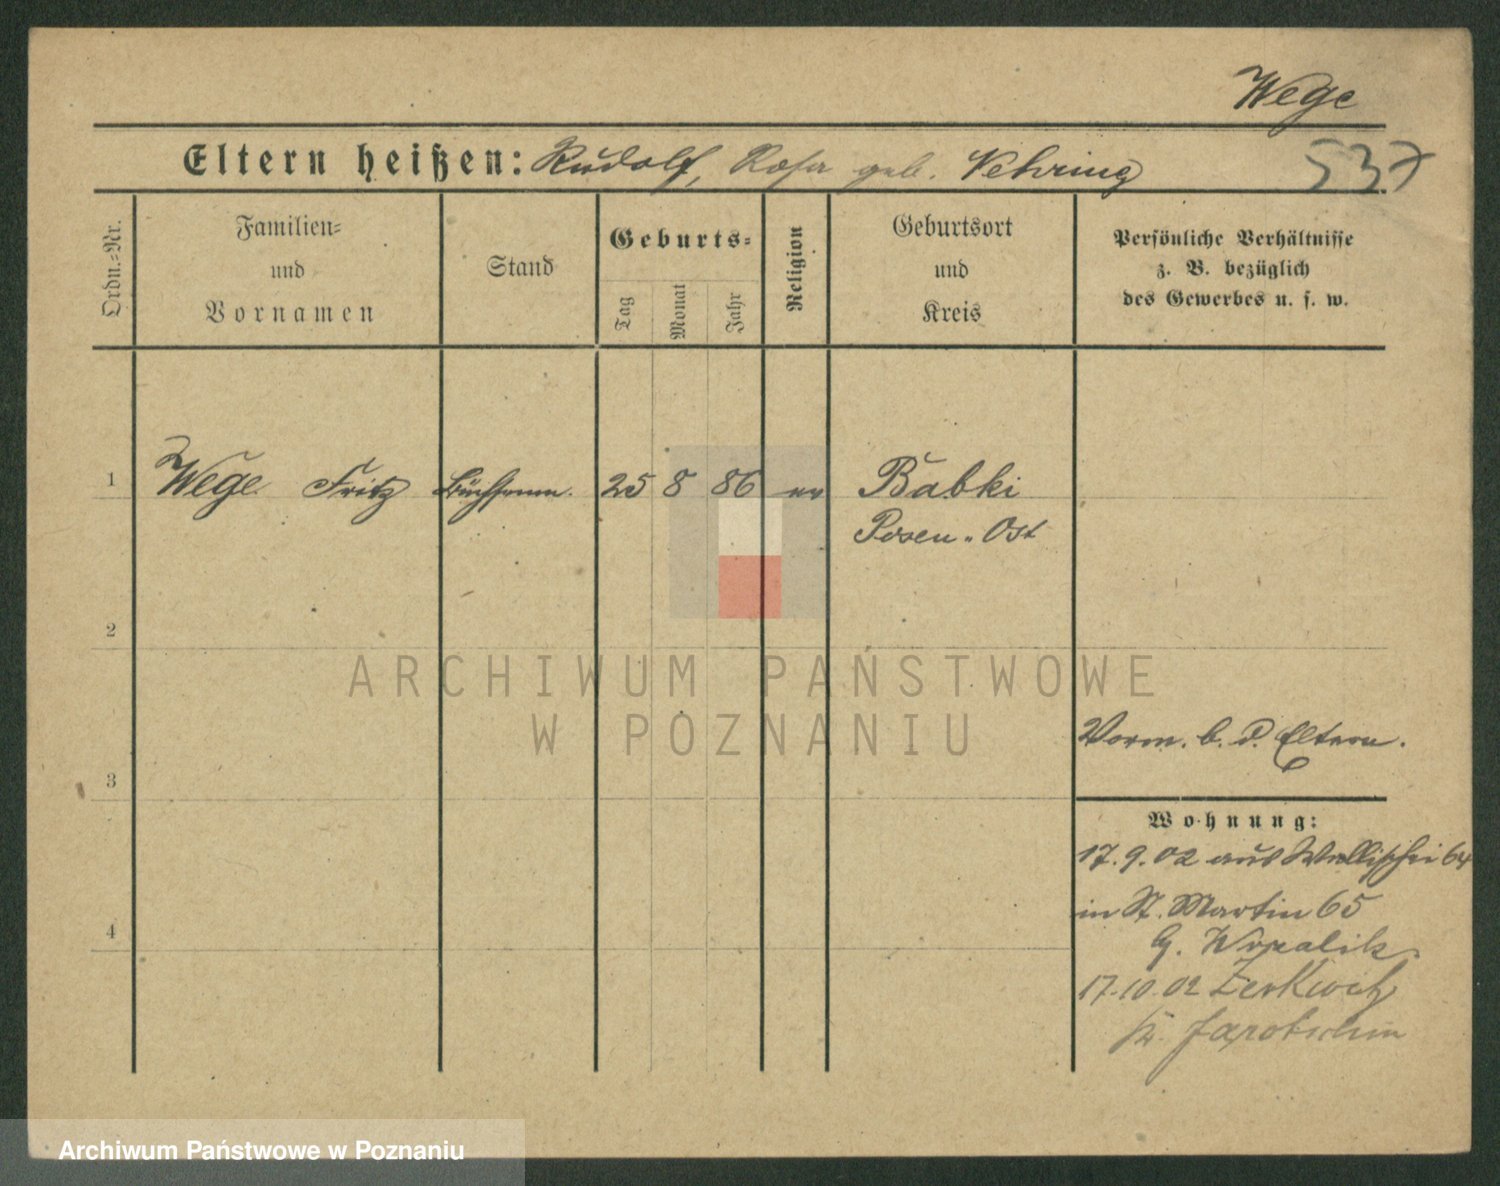 Wege
Eltern heißen: Rudolf, Rosa geb. Nehring
537
Ordn.-Nr.
Familien-
und
Vornamen
Stand
Geburts-
Tag
Monat
Jahr
Religion
Geburtsort
und
Kreis
Persönliche Verhältnisse
z. B. bezüglich
des Gewerbes u. s. w.
1 Wege Fritz 25 8 86 ev Babki
Posen-Ost
2
ARCHIWUM PAŃSTWOWE
W POZNANIU
Vorm. b. d. Eltern.
3
Wohnung:
17.9.02 aus Wallischei 64
in St. Martin 65
4
b. Wozalik
17.10.02 Zerkwitz
Kr. Jarotschin
Archiwum Państwowe w Poznaniu